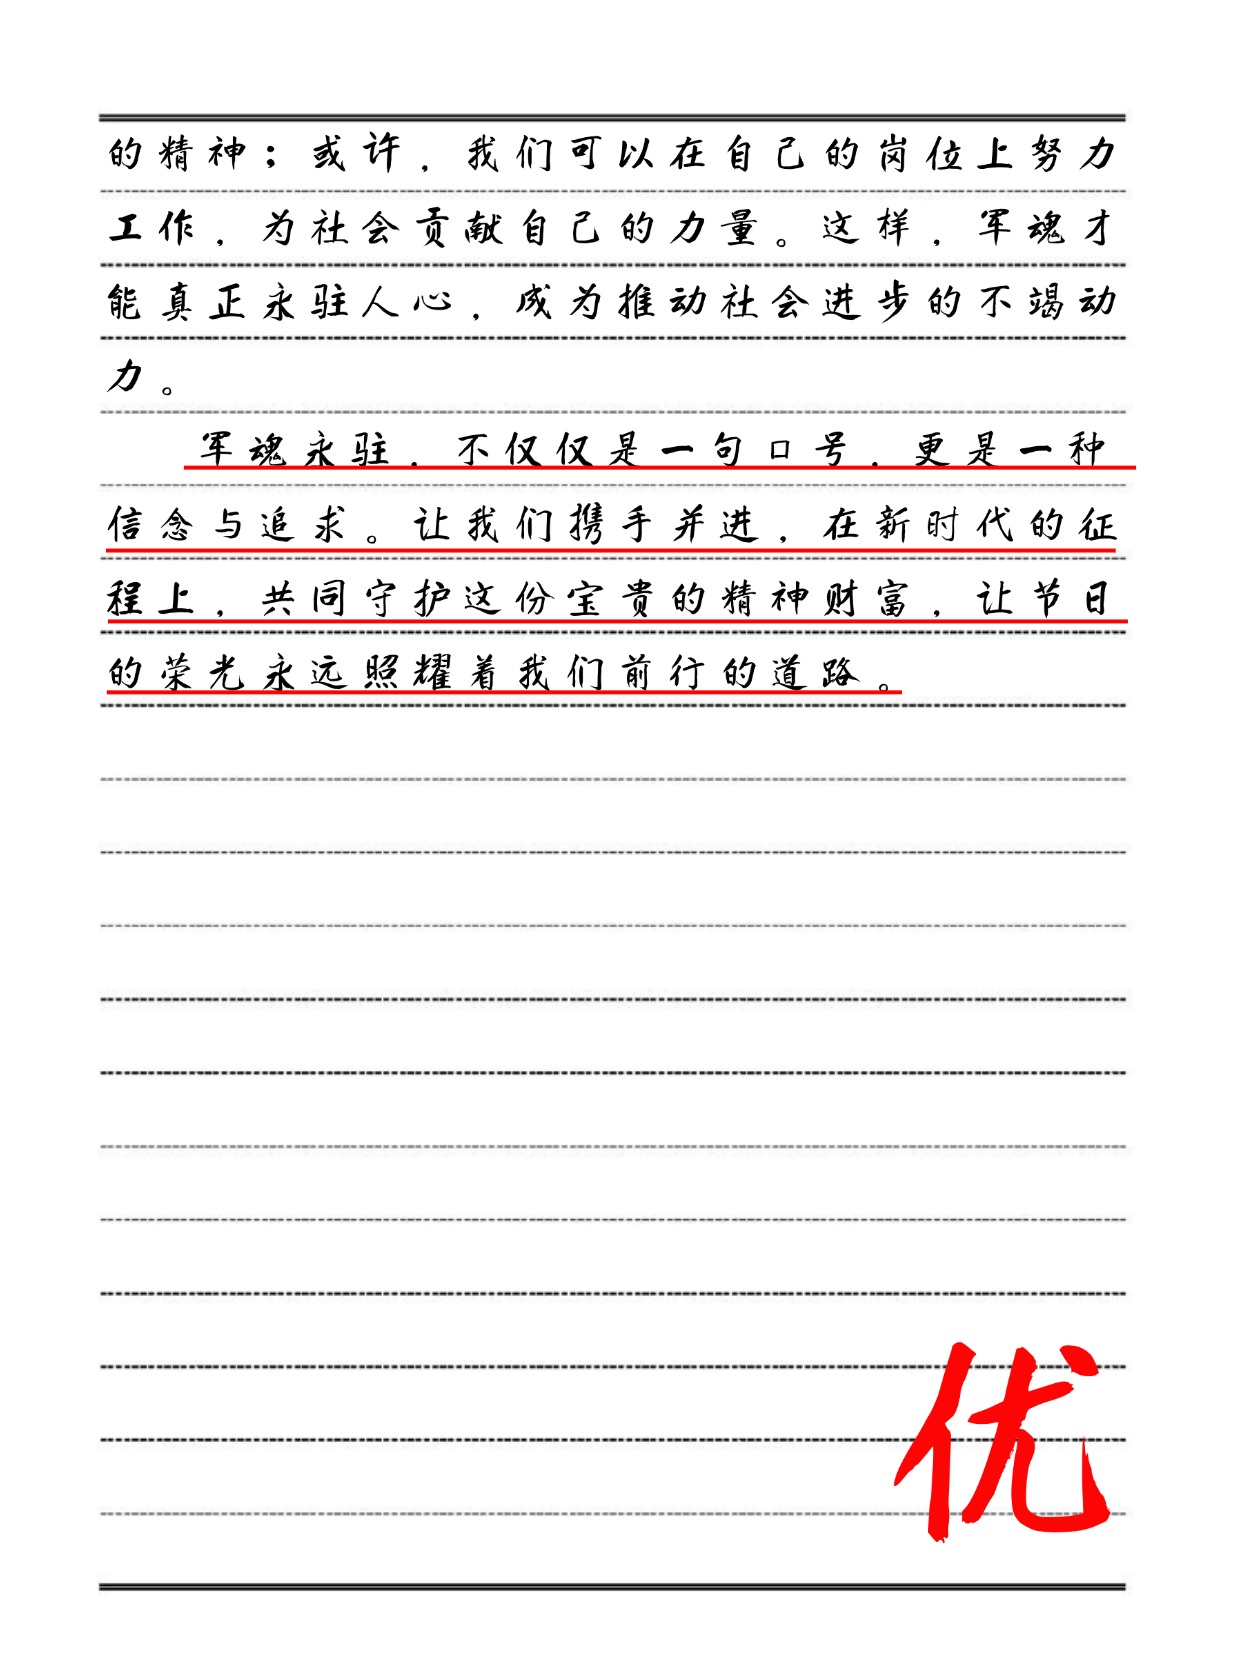 的精神；或许，我们可以在自己的岗位上努力
工作，为社会贡献自己的力量。这样，军魂才
能真正永驻人心，成为推动社会进步的不竭动
力。
军魂永驻，不仅仅是一句口号，更是一种
信念与追求。让我们携手并进，在新时代的征
程上，共同守护这份宝贵的精神财富，让节日
的荣光永远照耀着我们前行的道路。
优